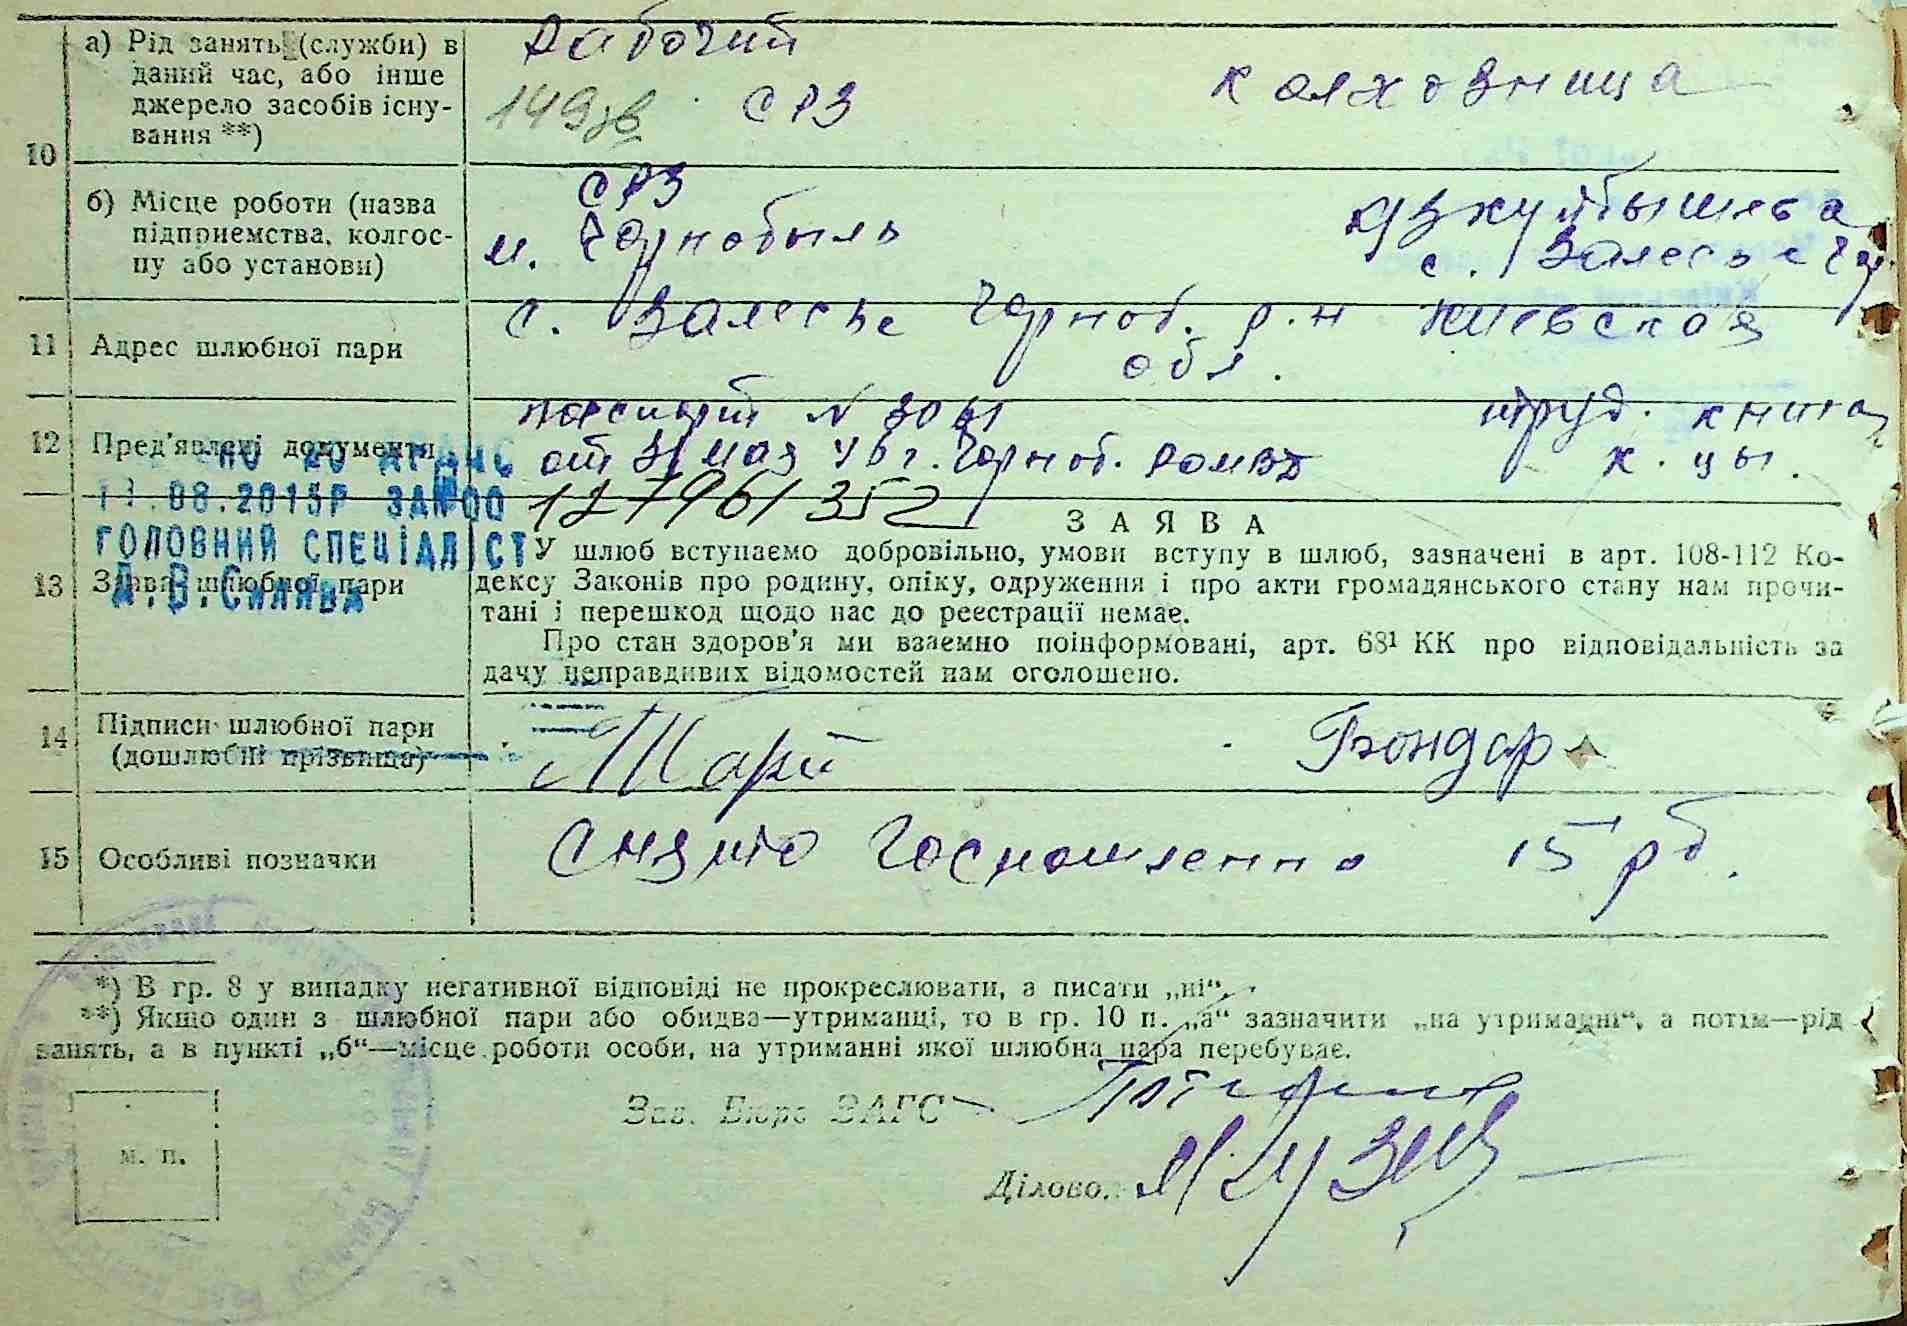 10
а) Рід занять (служби) в
даний час, або інше
джерело засобів існу-
вання **)
Рабочий
149зв СРЗ
колхозница
б) Місце роботи (назва
підприємства, колгос-
пу або установи)
СРЗ
м. Чернобыль
Куйбышева
с. Залесье Чер.
11 Адрес шлюбної пари
с. Залесье Черноб. р-н Киевская
обл.
12 Пред'явлені документи
паспорт N
от 31 мая 46 г. Черноб. РОМВД
труд. книга
к-цы.
127961352
11.08.2015Р ЗА
ГОЛОВНИЙ СПЕЦІАЛІСТ
13 Заява шлюбної пари
ЗАЯВА
У шлюб вступаємо добровільно, умови вступу в шлюб, зазначені в арт. 108-112 Ко-
дексу Законів про родину, опіку, одруження і про акти громадянського стану нам прочи-
тані і перешкод щодо нас до реєстрації немає.
Про стан здоров'я ми взаємно поінформовані, арт. 68¹ КК про відповідальність за
дачу неправдивих відомостей нам оголошено.
14 Підписи шлюбної пари
(дошлюбні прізвища)
Бондар
15 Особливі позначки
Снято Госпошленно 15 рб.
*) В гр. 8 у випадку негативної відповіді не прокреслювати, а писати „ні“.
**) Якщо один з шлюбної пари або обидва—утриманці, то в гр. 10 п. „а“ зазначити „на утриманні“, а потім—рід
занять, а в пункті „б“—місце роботи особи, на утриманні якої шлюбна пара перебуває.
м. п.
Зав. Бюро ЗАГС
Ділово.